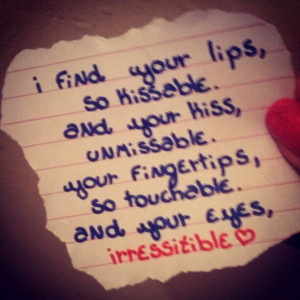 i find your lips,
so kissable.
and your kiss,
unmissable.
your fingertips,
so touchable.
and your eyes,
irressitible♡